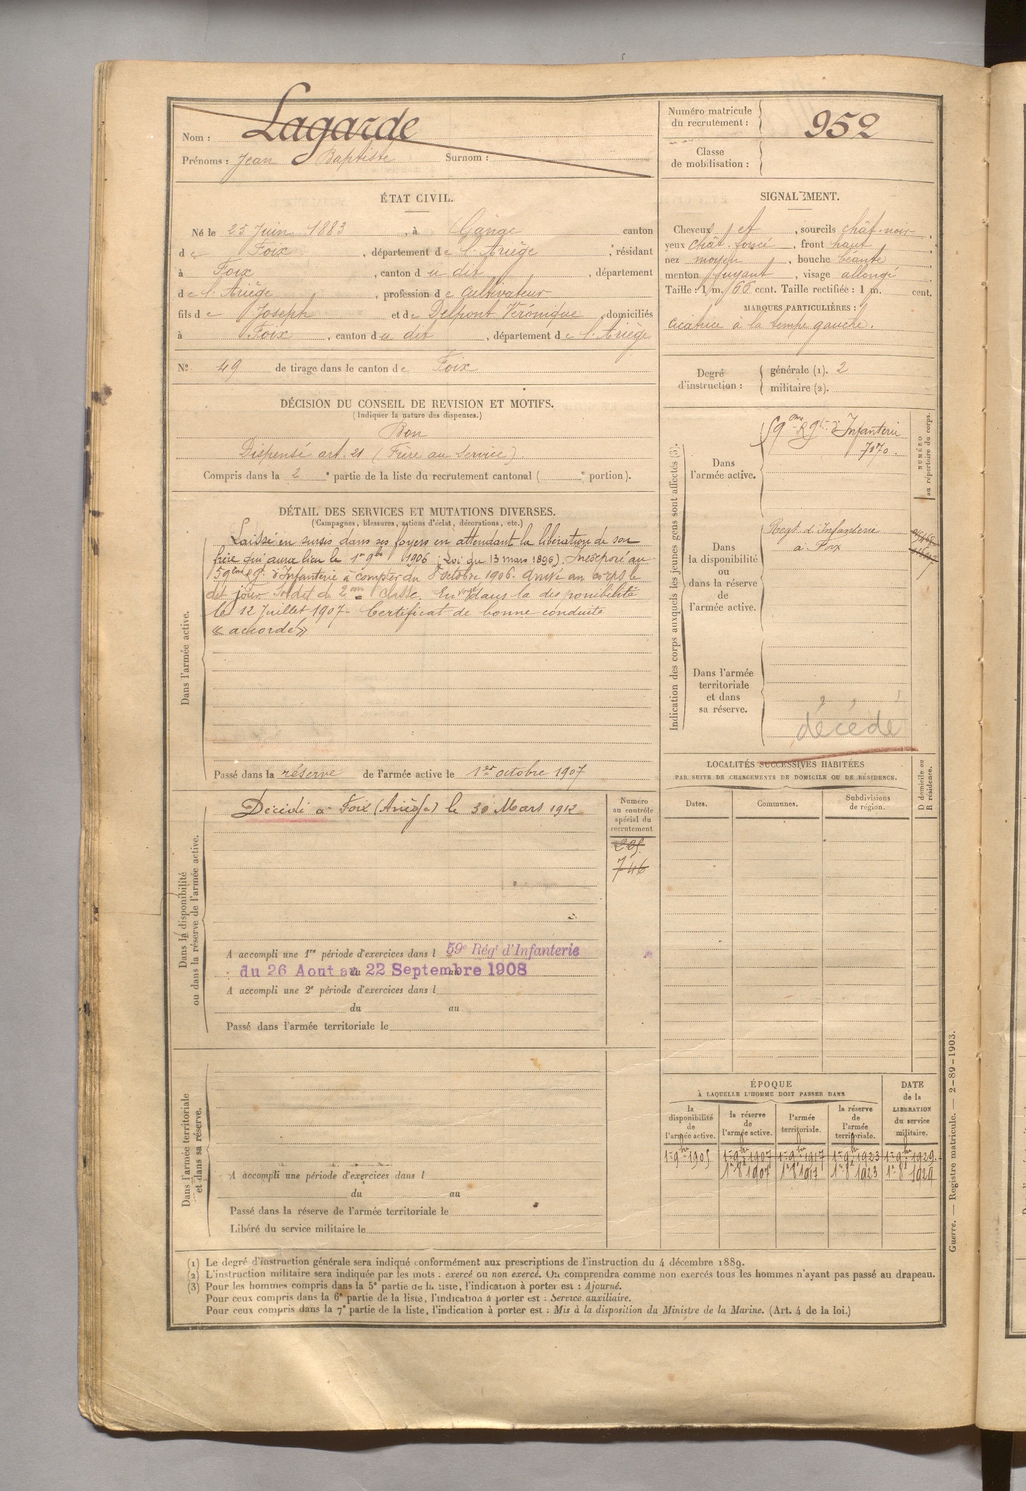 Nom : Lagarde
Prénoms : Jean Baptiste Surnom :
Numéro matricule du recrutement : 952
Classe de mobilisation :
ÉTAT CIVIL.
Né le 25 Juin 1883, à Ganac canton
de Foix, département de l'Ariège, résidant
à Foix, canton du dit, département
de l'Ariège, profession de Cultivateur
fils de Joseph et de Delpont Véronique, domiciliés
à Foix, canton du dit, département de l'Ariège
N° 49 de tirage dans le canton de Foix
SIGNALEMENT.
Cheveux et, sourcils chât-noir,
yeux chât. foncé, front haut,
nez moyen, bouche béante,
menton fuyant, visage allongé
Taille : 1 m. 66 cent. Taille rectifiée : 1 m. cent.
MARQUES PARTICULIÈRES :
Cicatrice à la tempe gauche.
Degré d'instruction : générale (1). 2
militaire (2).
DÉCISION DU CONSEIL DE REVISION ET MOTIFS.
(Indiquer la nature des dispenses.)
Bon
Dispensé art. 21 (Frère au Service).
Compris dans la 2e partie de la liste du recrutement cantonal ( e portion).
DÉTAIL DES SERVICES ET MUTATIONS DIVERSES.
(Campagnes, blessures, actions d'éclat, décorations, etc.)
Dans l'armée active.
Laissé en sursis dans ses foyers en attendant la libération de son
frère qui aura lieu le 1er 9bre 1906 (Loi du 13 mars 1896) Incorporé au
59ème Rgt d'Infanterie à compter du 8 octobre 1906. Arrivé au corps le
dit jour Soldat de 2me classe. Envoyé dans la disponibilité
le 12 Juillet 1907. Certificat de bonne conduite
« accordé »
Passé dans la réserve de l'armée active le 1er octobre 1907
Indication des corps auxquels les jeunes gens sont affectés (3).
NUMÉRO au répertoire du corps.
Dans l'armée active.
59me Rgt d'Infanterie
7070.
Dans la disponibilité ou dans la réserve de l'armée active.
Regt d'Infanterie
à Foix
Dans l'armée territoriale et dans sa réserve.
décédé
Dans la disponibilité ou dans la réserve de l'armée active.
Numéro au contrôle spécial du recrutement
Décédé à Foix (Ariège) le 30 Mars 1912
746
A accompli une 1re période d'exercices dans l 59e Régt d'Infanterie
du 26 Aout au 22 Septembre 1908
A accompli une 2e période d'exercices dans l
du au
Passé dans l'armée territoriale le
LOCALITÉS SUCCESSIVES HABITÉES
PAR SUITE DE CHANGEMENTS DE DOMICILE OU DE RÉSIDENCE.
Dates. Communes. Subdivisions de région. D domicile ou R résidence.
Dans l'armée territoriale et dans sa réserve.
A accompli une période d'exercices dans l
du au
Passé dans la réserve de l'armée territoriale le
Libéré du service militaire le
ÉPOQUE
À LAQUELLE L'HOMME DOIT PASSER DANS
DATE de la LIBÉRATION du service militaire.
la disponibilité de l'armée active. la réserve de l'armée active. l'armée territoriale. la réserve de l'armée territoriale.
1er 9bre 1905 1er 9bre 1907 1er 9bre 1917 1er 9bre 1923 1er 9bre 1929.
1er 8bre 1907 1er 8bre 1917 1er 8bre 1923 1er 8bre 1929
(1) Le degré d'instruction générale sera indiqué conformément aux prescriptions de l'instruction du 4 décembre 1889.
(2) L'instruction militaire sera indiquée par les mots : exercé ou non exercé. On comprendra comme non exercés tous les hommes n'ayant pas passé au drapeau.
(3) Pour les hommes compris dans la 5e partie de la liste, l'indication à porter est : Ajourné.
Pour ceux compris dans la 6e partie de la liste, l'indication à porter est : Service auxiliaire.
Pour ceux compris dans la 7e partie de la liste, l'indication à porter est : Mis à la disposition du Ministre de la Marine. (Art. 4 de la loi.)
Guerre. — Registre matricule. — 2-89-1903.